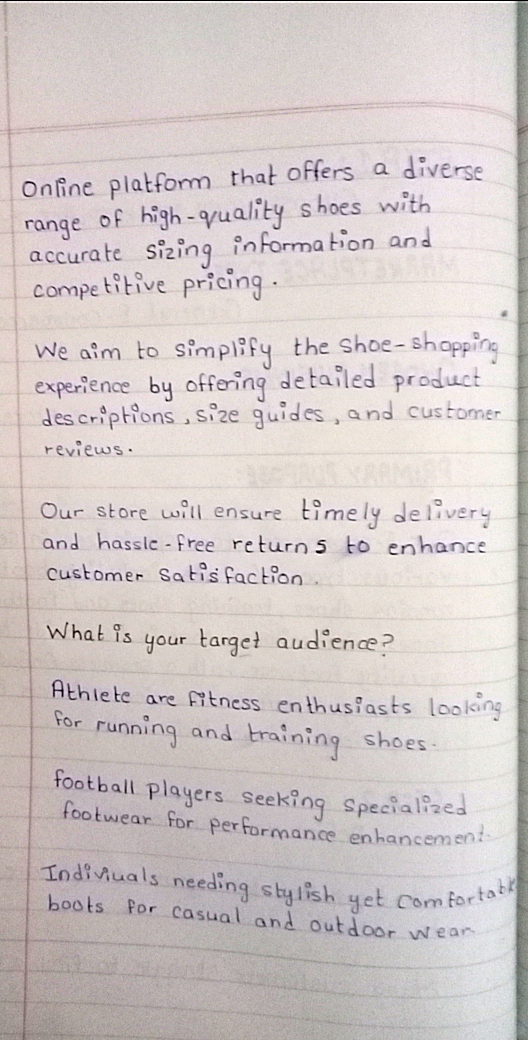 Online platform that offers a diverse
range of high-quality shoes with
accurate sizing information and
competitive pricing.
We aim to simplify the shoe-shopping
experience by offering detailed product
descriptions, size guides, and customer
reviews.
Our store will ensure timely delivery
and hassle-free returns to enhance
customer satisfaction.
What is your target audience?
Athlete are fitness enthusiasts looking
for running and training shoes.
football players seeking specialized
footwear for performance enhancement.
Indiviuals needing stylish yet comfortable
boots for casual and outdoor wear.